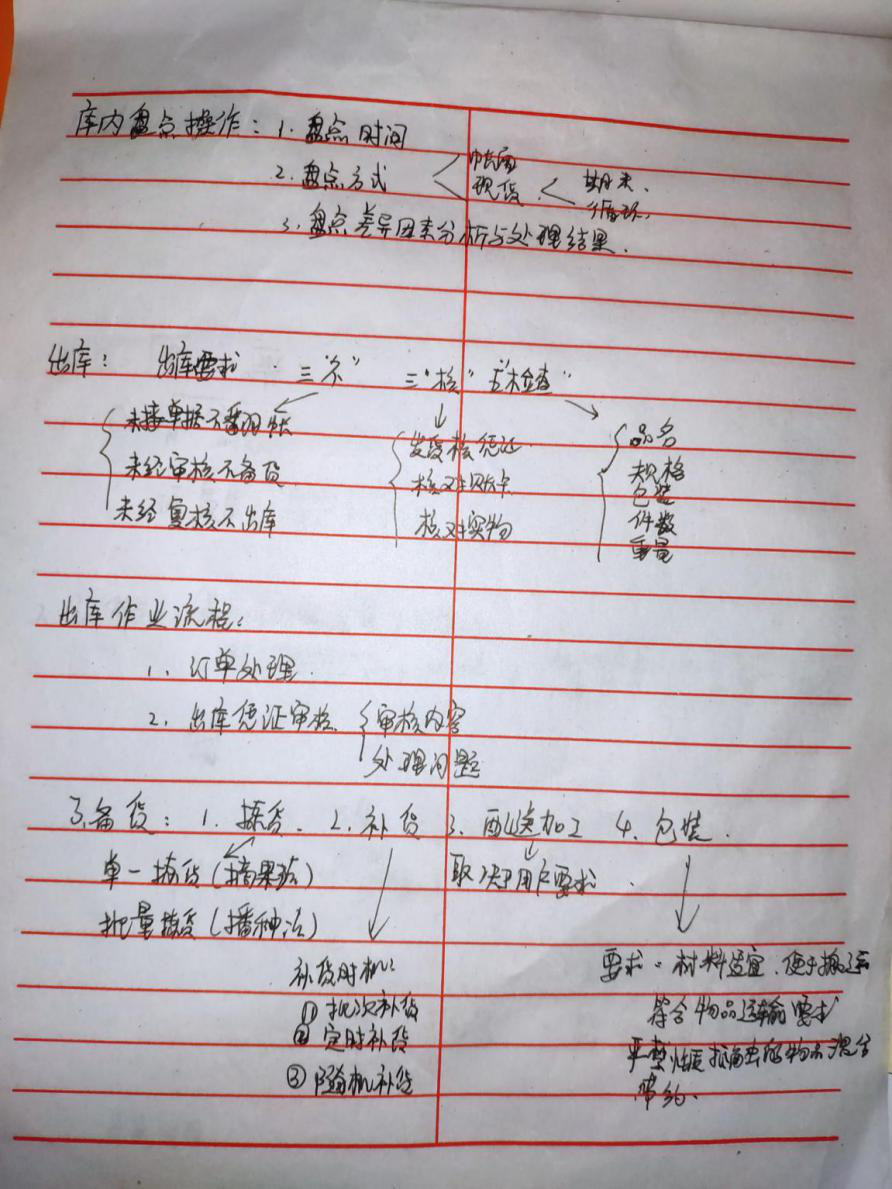 库内盘点操作：1. 盘点时间
2. 盘点方式 帐面
现货 期末、
循环、
3. 盘点差异因素分析与处理结果.
出库： 出库要求 三"不" 三"核" 五"检查"
未接单据不翻帐 发货核凭证 品名
未经审核不备货 核对账卡 规格
未经复核不出库 核对实物 包装
件数
重量
出库作业流程：
1、订单处理.
2. 出库凭证审核 审核内容
处理问题
3、备货：1. 拣货. 2. 补货 3. 配送加工 4. 包装.
单一拣货（摘果法） 取决于用户要求.
批量拣货（播种法）
补货时机：
① 批次补货
② 定时补货
③ 随机补货
要求：材料适宜、便于搬运
符合物品运输要求
严禁性质抵触 物 混合